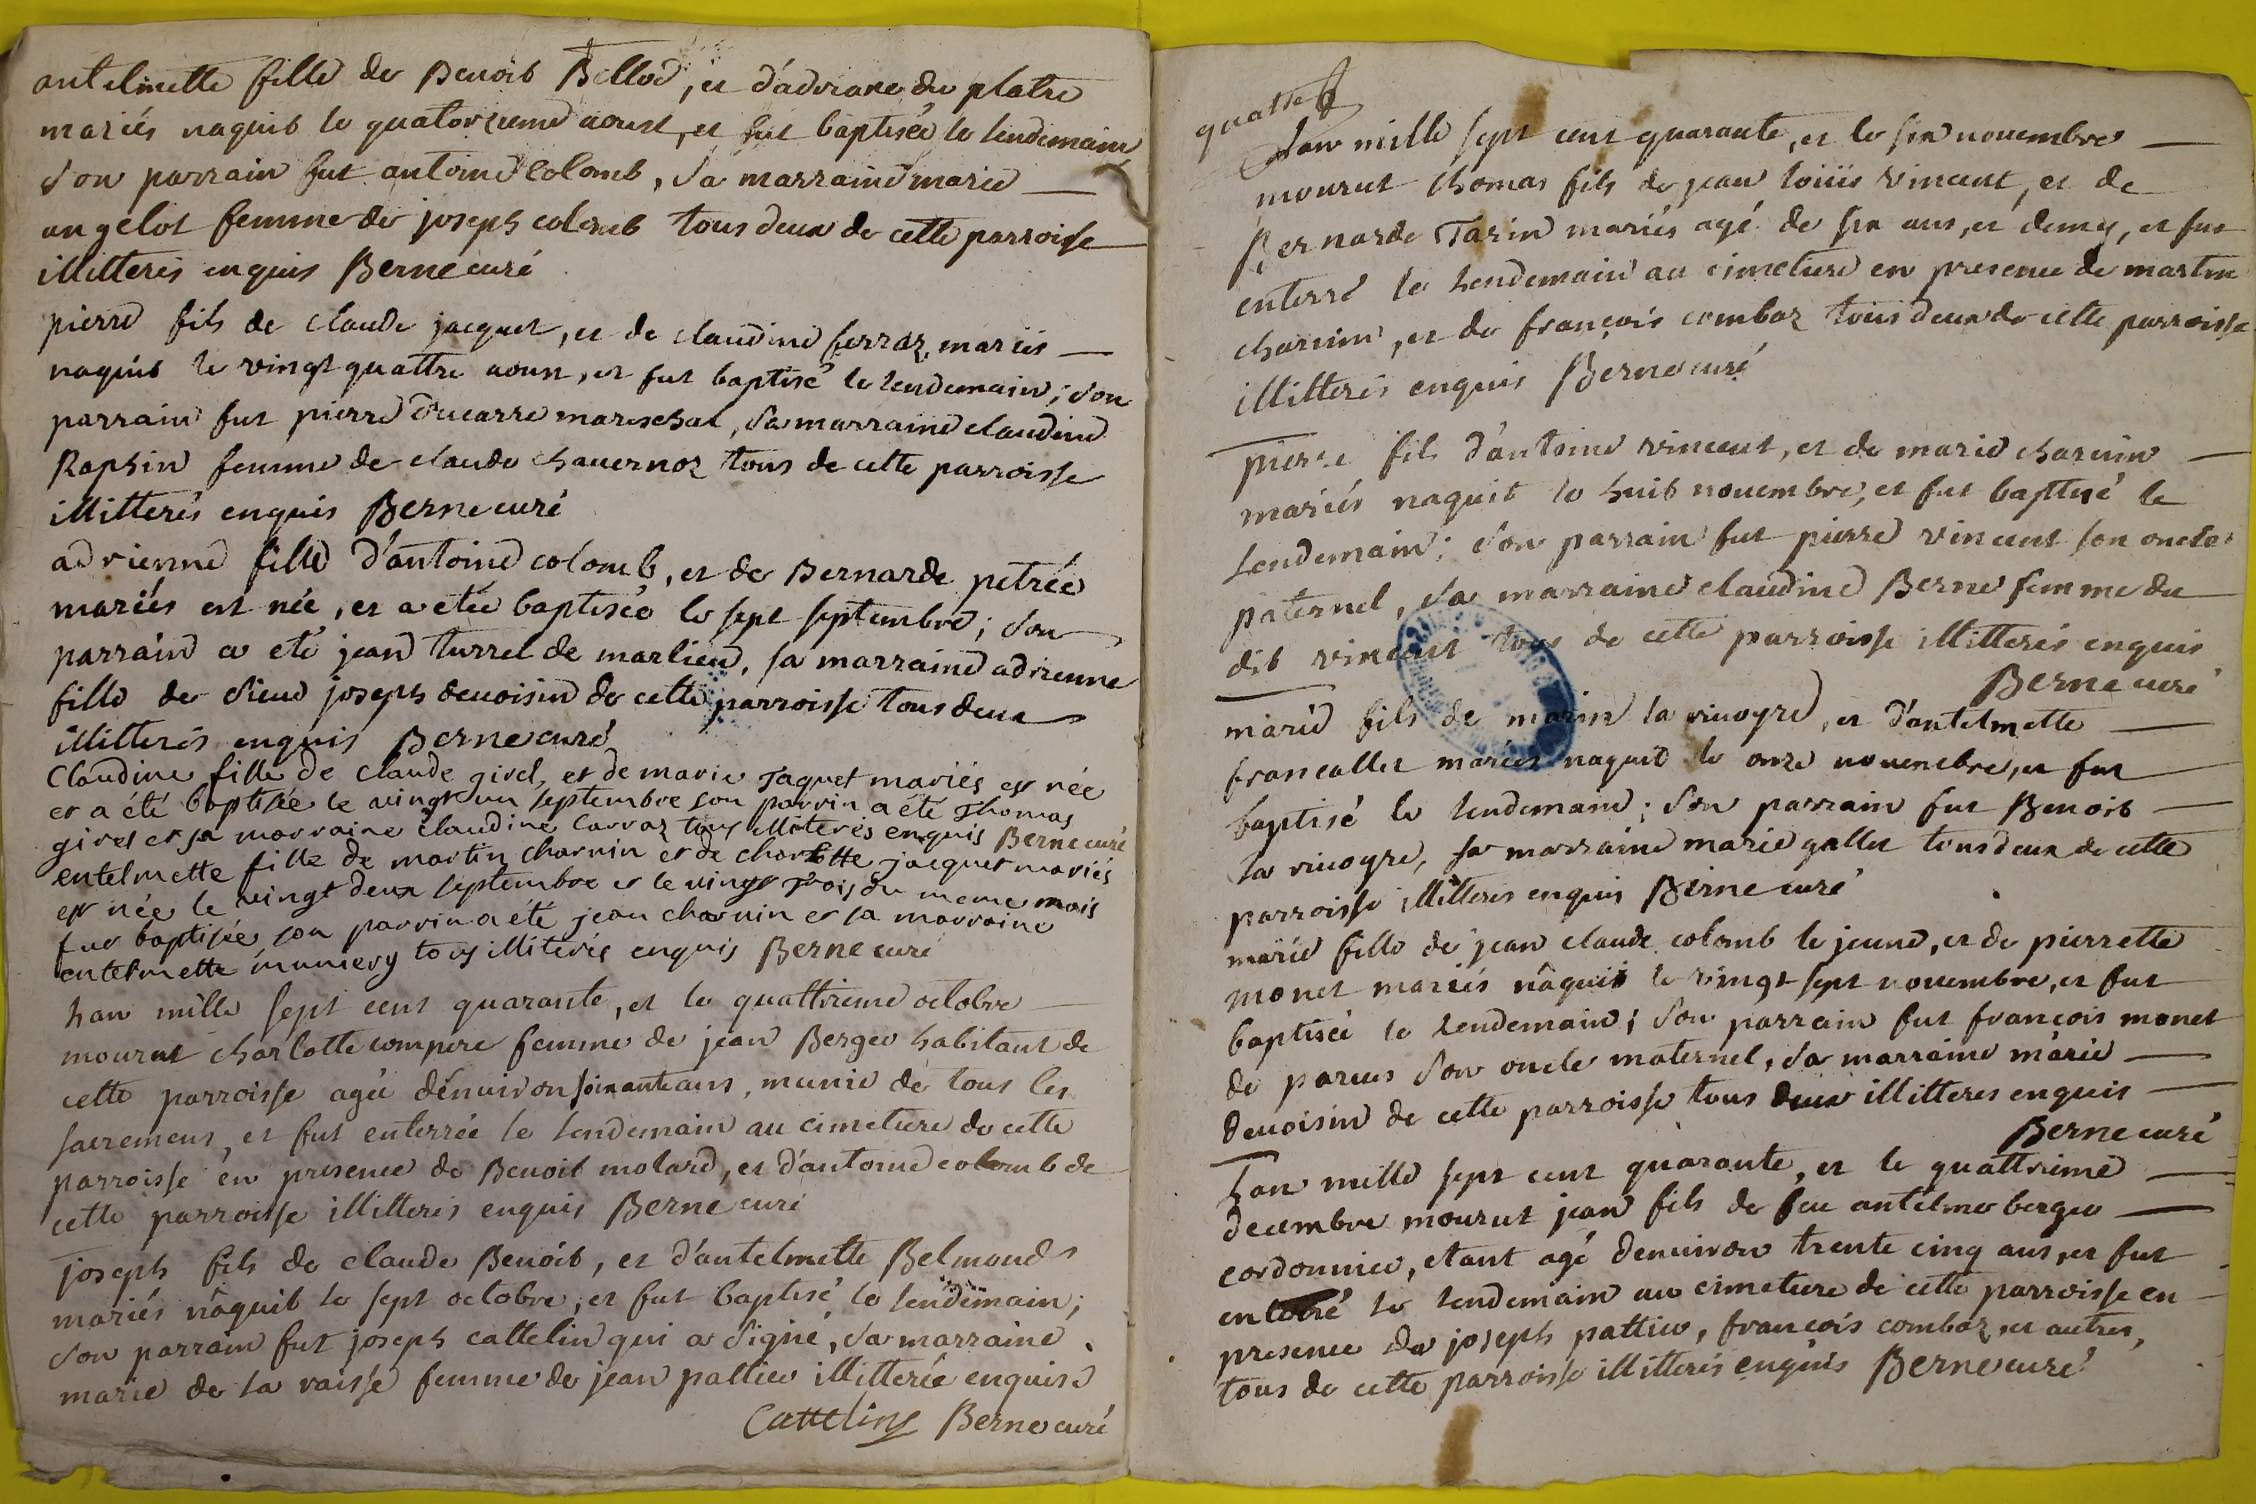 antelmette fille de Benoit Bellod, et d'adriane du platre
mariés naquit le quatorzieme aoust, et fut baptisée le lendemain
son parrain fut antoine colomb, sa marraine marie
angelot femme de joseph colomb tous deux de cette parroisse
illitterés enquis Berne curé
pierre fils de claude jacquet, et de claudine ferraz mariés
naquit le vingt quattre aoust, et fut baptisé le lendemain; son
parrain fut pierre ducarre mareschal, sa marraine claudine
Raphin femme de claude chavernoz tous de cette parroisse
illitterés enquis Berne curé
adrienne fille d'antoine colomb, et de Bernarde petrée
mariés est née, et a etée baptisée le sept septembre; son
parrain a eté jean turrel de marlieu, sa marraine adrienne
fille de sieur joseph devoisin de cette parroisse tous deux
illitterés enquis Berne curé
Claudine fille de claude girel, et de marie Jaquet mariés est née
et a été baptisée le vingt un septembre son parrin a été Thomas
girel et sa marraine claudine Carraz tous illiterés enquis Berne curé
entelmette fille de martin charvin et de charlotte jacquet mariés
est née le vingt deux septembre et le vingt trois du meme mois
fut baptisée son parrin a été jean charvin et sa marraine
entelmette mumery tous illiterés enquis Berne curé
Lan mille sept cent quarante, et le quattrieme octobre
mourut charlotte compere femme de jean Berger habitant de
cette parroisse agée d'énviron soixante ans, munie de tous les
sacremens, et fut enterrée le lendemain au cimetiere de cette
parroisse en presence de Benoit molard, et d'antoine colomb de
cette parroisse illitterés enquis Berne curé
joseph fils de claude Benoit, et d'antelmette Belmond
mariés naquit le sept octobre, et fut baptisé le lendemain;
son parrain fut joseph cattelin qui a signé, sa marraine
marie de la vaisse femme de jean pattieu illitterée enquise
Cattelin Berne curé
quattre
Lan mille sept cent quarante, et le six novembre
mourut thomas fils de jean loüis vincent, et de
Bernarde Tarin mariés agé de six ans, et demy, et fut
enterré le lendemain au cimetiere en presence de martin
charvin, et de françois comboz tous deux de cette parroisse
illitterés enquis Berne curé
pierre fils d'antoine vincent, et de marie charvin
mariés naquit le huit novembre, et fut baptisé le
Lendemain; son parrain fut pierre vincent son oncle
paternel, sa marraine claudine Berne femme du
dit vincent tous de cette parroisse illitterés enquis
Berne curé
marie fils de marin la vivoyre, et d'antelmette
francallet mariés naquit le onze novembre, et fut
baptisé le lendemain; son parrain fut Benoit
la vivoyre, sa marraine marie gallet tous deux de cette
parroisse illitterés enquis Berne curé
marie fille de jean claude colomb le jeune, et de pierrette
monet mariés nâquit le vingt sept novembre, et fut
baptisée le lendemain; son parrain fut françois monet
de parves son oncle maternel, sa marraine marie
devoisin de cette parroisse tous deux illitterés enquis
Berne curé
Lan mille sept cent quarante, et le quattrieme
decembre mourut jean fils de feu antelme berger
cordonnier, etant agé denviron trente cinq ans, et fut
enterré le lendemain au cimetiere de cette parroisse en
presence de joseph pattieu, françois comboz, et autres,
tous de cette parroisse illitterés enquis Berne curé